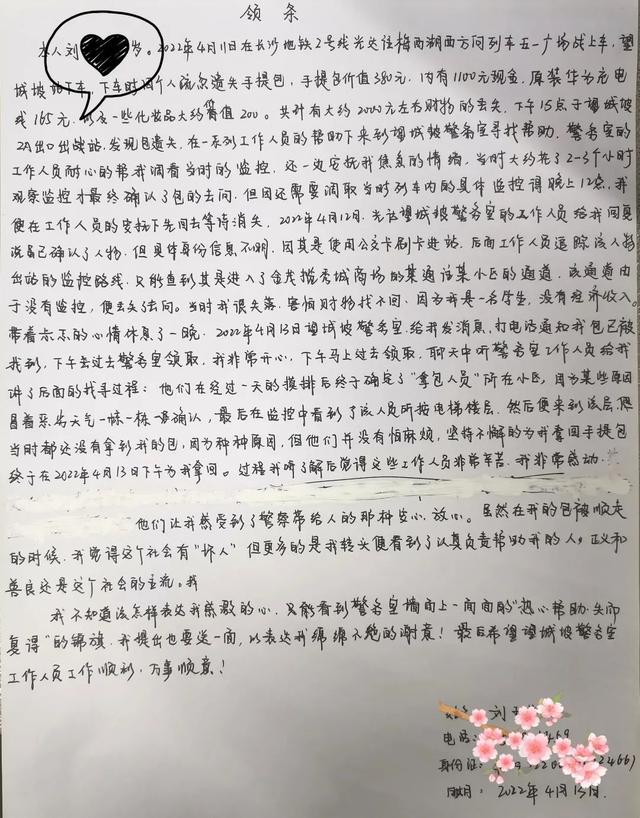 领条
本人刘 岁。2022年4月11日在长沙地铁2号线光达往梅西湖西方向列车五一广场战上车,望
城坡站下车,下车时因个人疏忽遗失手提包,手提包价值380元,内有1100元现金,原装华为充电
线165元,以及一些化妆品大约算值200。共计有大约2000元左右财物的丢失。下午15点于望城坡
2A出口出战站,发现包遗失,在一系列工作人员的帮助下来到望城坡警务室寻找帮助。警务室的
工作人员耐心的帮我调看当时的监控,还一边安抚我焦急的情绪,当时大约花了2-3个小时
观察监控才最终确认了包的去向。但因还需要调取当时列车内的具体监控得晚上12点,我
便在工作人员的安抚下先回去等待消失,2022年4月12日,先达望城坡警务室的工作人员给我回复
说虽已确认了人物,但具体身份信息不明,因其是使用公交卡刷卡进站,后面工作人员追踪该人物
出站的监控路线,只能查到其是进入了金茂揽秀城商场的某通该某小区的通道,该通道由
于没有监控,便丢失了去向。当时我很失落,害怕财物找不回,因为我是一名学生,没有经济收入。
带着忐忑的心情休息了一晚,2022年4月13日望城坡警务室给我发消息,打电话通知我包已被
找到,下午去过去警务室领取,我非常开心,下午马上过去领取,聊天中听警务室工作人员给我
讲了后面的找寻过程:他们在经过一天的摸排后终于确定了"拿包人员"所在小区,因为某些原因
冒着恶劣天气一栋一栋确认,最后在监控中看到了该人员所按电梯楼层,然后便来到该层,但
当时都还没有拿到我的包,因为种种原因,但他们并没有怕麻烦,坚持不懈的为我拿回手提包
终于在2022年4月13日下午为我拿回。过程我听了解后觉得这些工作人员非常辛苦,我非常感动.
他们让我感受到了警察带给人的那种安心、放心。虽然在我的包被顺走
的时候,我觉得这个社会有"坏人"但更多的是我转头便看到了认真负责帮助我的人,正义和
善良还是这个社会的主流。我
我不知道该怎样表达我感激的心,只能看到警务室墙面上一面面的"热心帮助,失而
复得"的锦旗,我提出也要送一面,以表达我绵绵不绝的谢意!最后希望望城坡警务室
工作人员工作顺利,万事顺意!
刘
电话:
身份证:
日期:2022年4月13日.